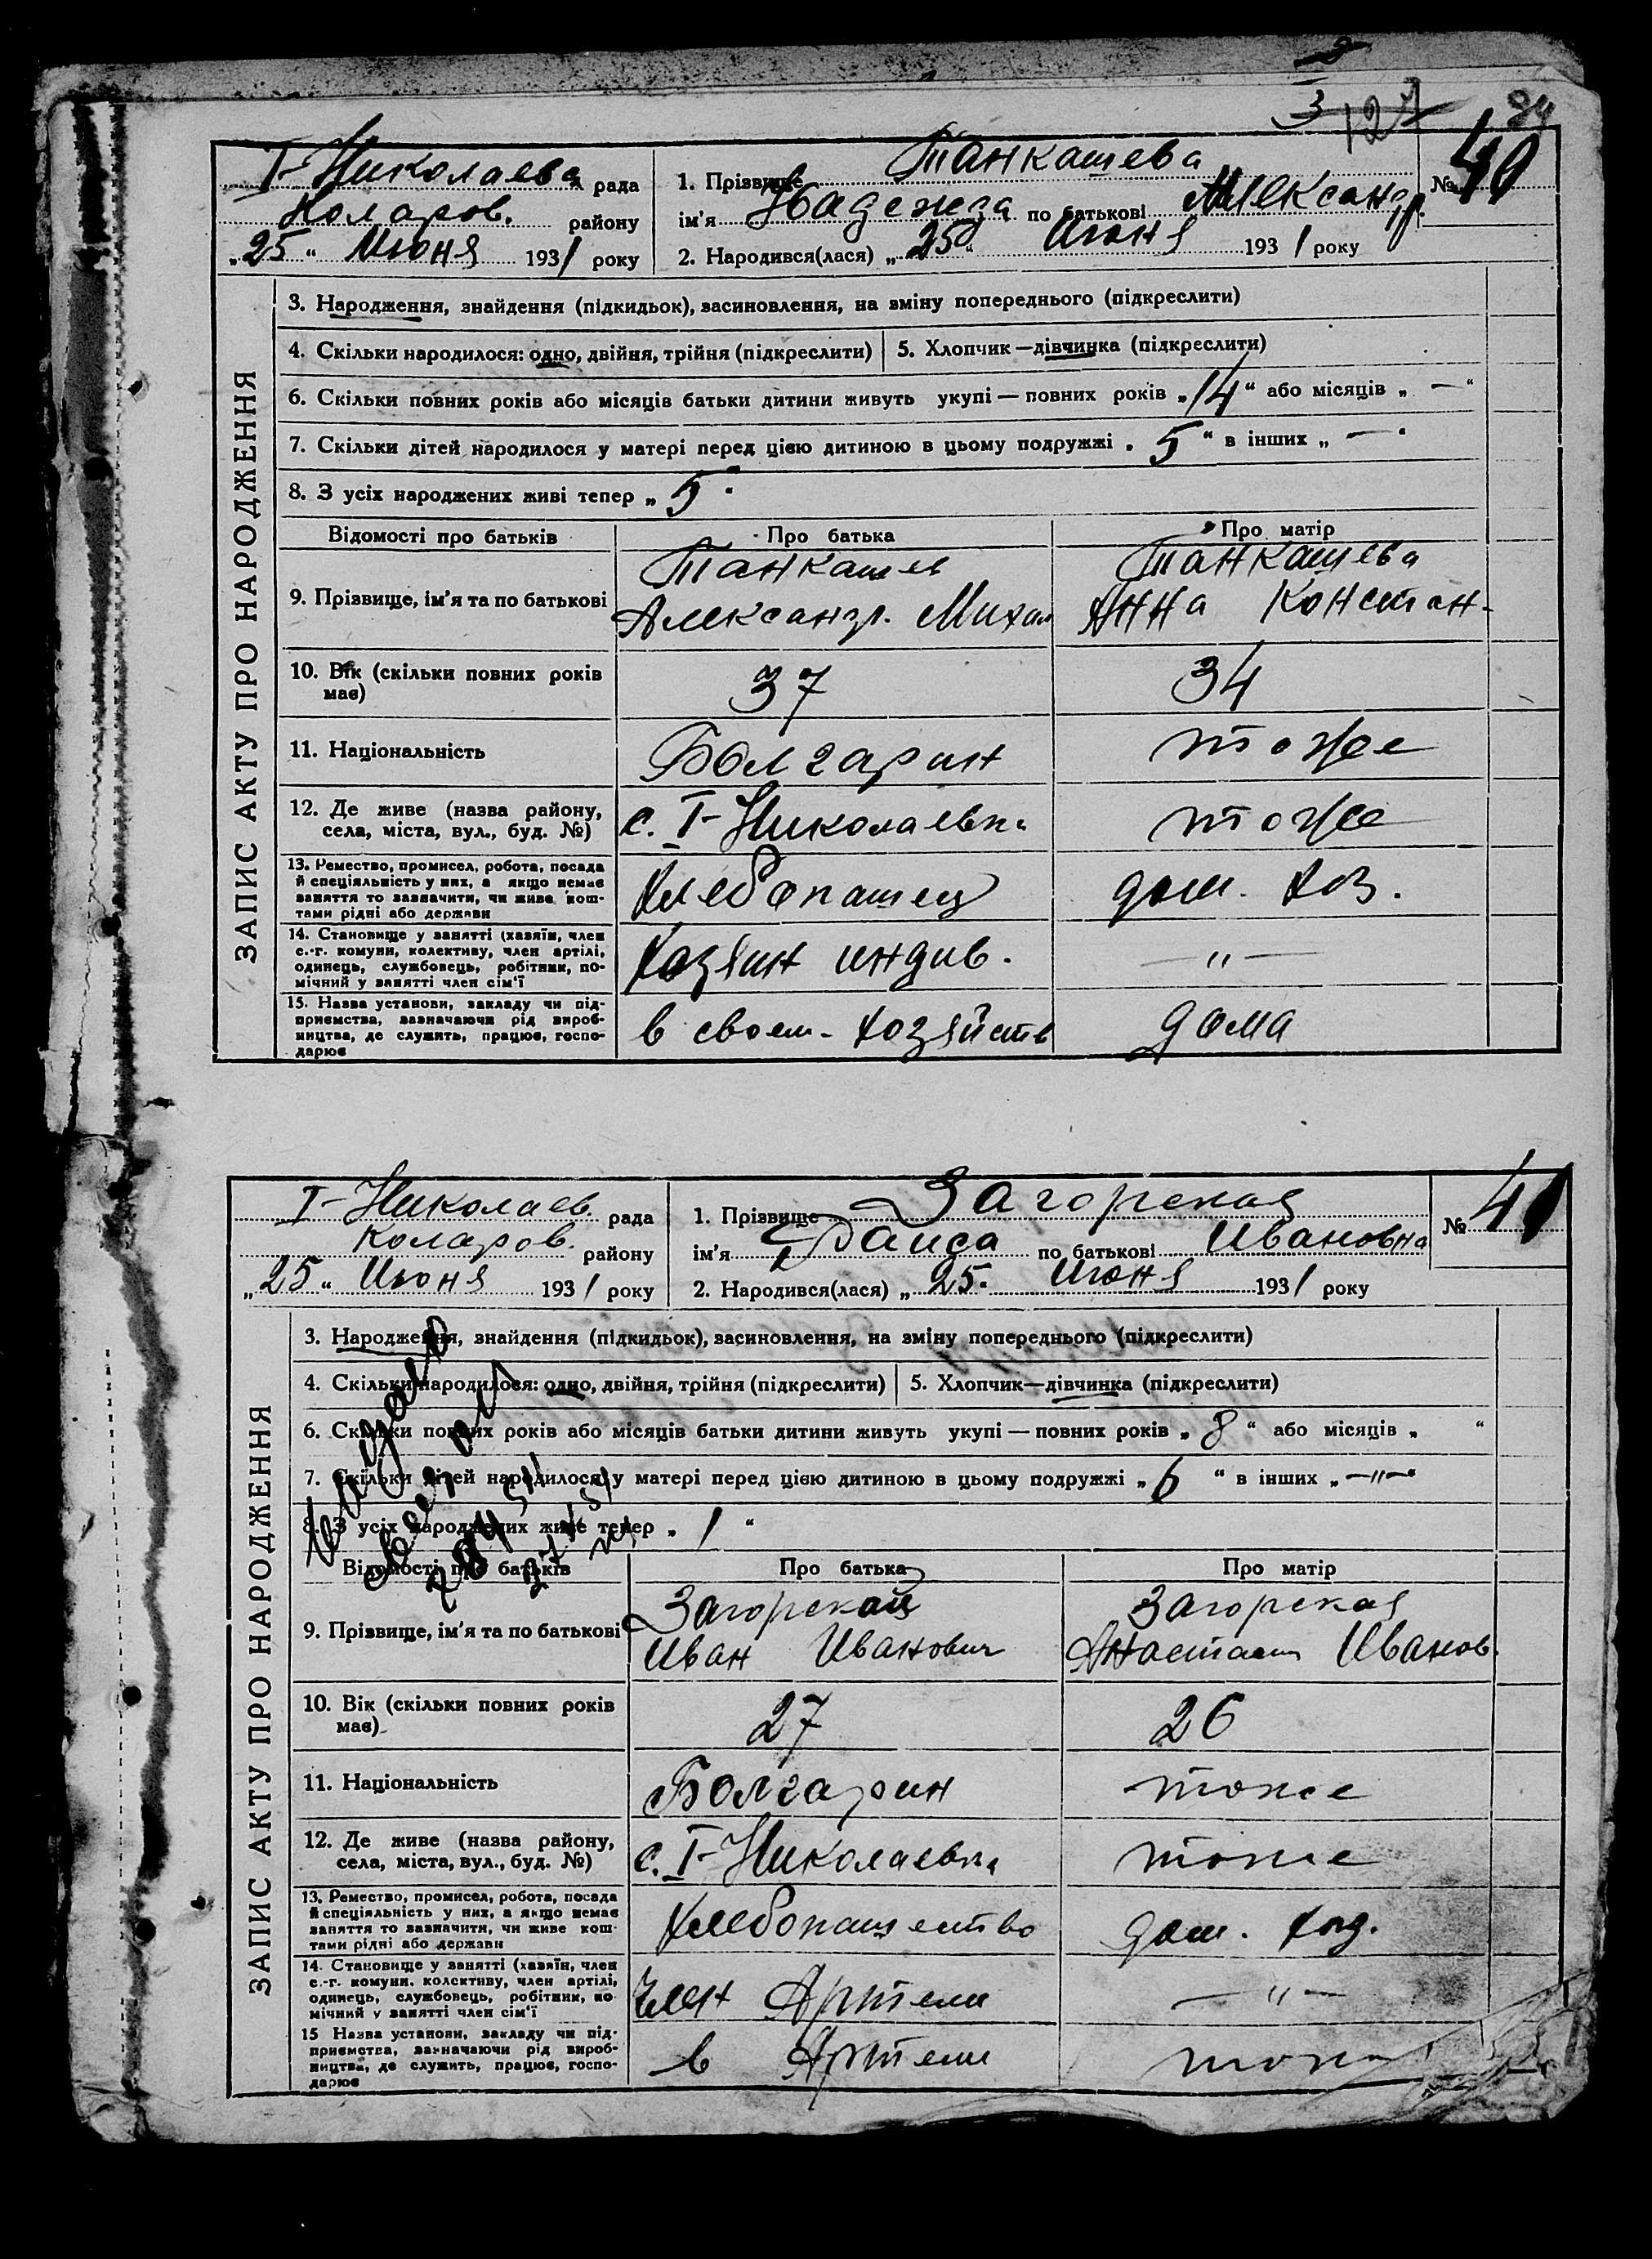 84
I-Николаева рада
Коларов. району
„25“ Июня 1931 року
1. Прізвище Танкашева
ім'я Надежда по батькові Александр.
№ 40
2. Народився(лася) „25“ Июня 1931 року
ЗАПИС АКТУ ПРО НАРОДЖЕННЯ
3. Народження, знайдення (підкидьок), засиновлення, на зміну попереднього (підкреслити)
4. Скільки народилося: одно, двійня, трійня (підкреслити) 5. Хлопчик—дівчинка (підкреслити)
6. Скільки повних років або місяців батьки дитини живуть укупі — повних років „14“ або місяців „—“
7. Скільки дітей народилося у матері перед цією дитиною в цьому подружжі „5“ в інших „—“
8. З усіх народжених живі тепер „5“
Відомості про батьків Про батька Про матір
9. Прізвище, ім'я та по батькові
Танкашев
Александр. Михал
Танкашева
Анна Констан-
10. Вік (скільки повних років
має)
37 34
11. Національність Болгарин тоже
12. Де живе (назва району,
села, міста, вул., буд. №)
с. I-Николаевка тоже
13. Ремество, промисел, робота, посада
й спеціяльність у них, а якщо немає
заняття то зазначити, чи живе кош-
тами рідні або держави
Хлебопашец дом. хоз.
14. Становище у занятті (хазяїн, член
с.-г. комуни, колективу, член артілі,
одинець, службовець, робітник, по-
мічний у занятті член сім'ї
Хозяин индив. —„—
15. Назва установи, закладу чи під-
приємства, зазначаючи рід вироб-
ництва, де служить, працює, госпо-
дарює
в своем- хозяйств дома
I-Николаев. рада
Коларов. району
„25“ Июня 1931 року
1. Прізвище Загорская
ім'я Раиса по батькові Ивановна
№ 41
2. Народився(лася) „25. Июня 1931 року
ЗАПИС АКТУ ПРО НАРОДЖЕННЯ
3. Народження, знайдення (підкидьок), засиновлення, на зміну попереднього (підкреслити)
4. Скільки народилося: одно, двійня, трійня (підкреслити) 5. Хлопчик—дівчинка (підкреслити)
6. Скільки повних років або місяців батьки дитини живуть укупі — повних років „8“ або місяців „ “
7. Скільки дітей народилося у матері перед цією дитиною в цьому подружжі „6“ в інших „—„—“
8. З усіх народжених живе тепер „1“
Выдано
Відомості про батьків Про батька Про матір
9. Прізвище, ім'я та по батькові
Загорской
Иван Иванович
Загорская
Анастасия Иванов.
10. Вік (скільки повних років
має)
27 26
11. Національність Болгарин тоже
12. Де живе (назва району,
села, міста, вул., буд. №)
с. I-Николаевка тоже
13. Ремество, промисел, робота, посада
й спеціяльність у них, а якщо немає
заняття то зазначити, чи живе кош-
тами рідні або держави
Хлебопашество дом. хоз.
14. Становище у занятті (хазяїн, член
с.-г. комуни, колективу, член артілі,
одинець, службовець, робітник, по-
мічний у занятті член сім'ї
Член Артели —„—
15 Назва установи, закладу чи під-
приємства, зазначаючи рід вироб-
ництва, де служить, працює, госпо-
дарює
в Артели